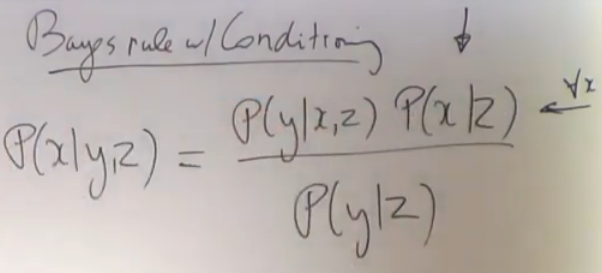 Bayes rule w/ Conditioning
↓
P(y|x,z) P(x|z) ← ∀x
P(x|y,z) =
P(y|z)